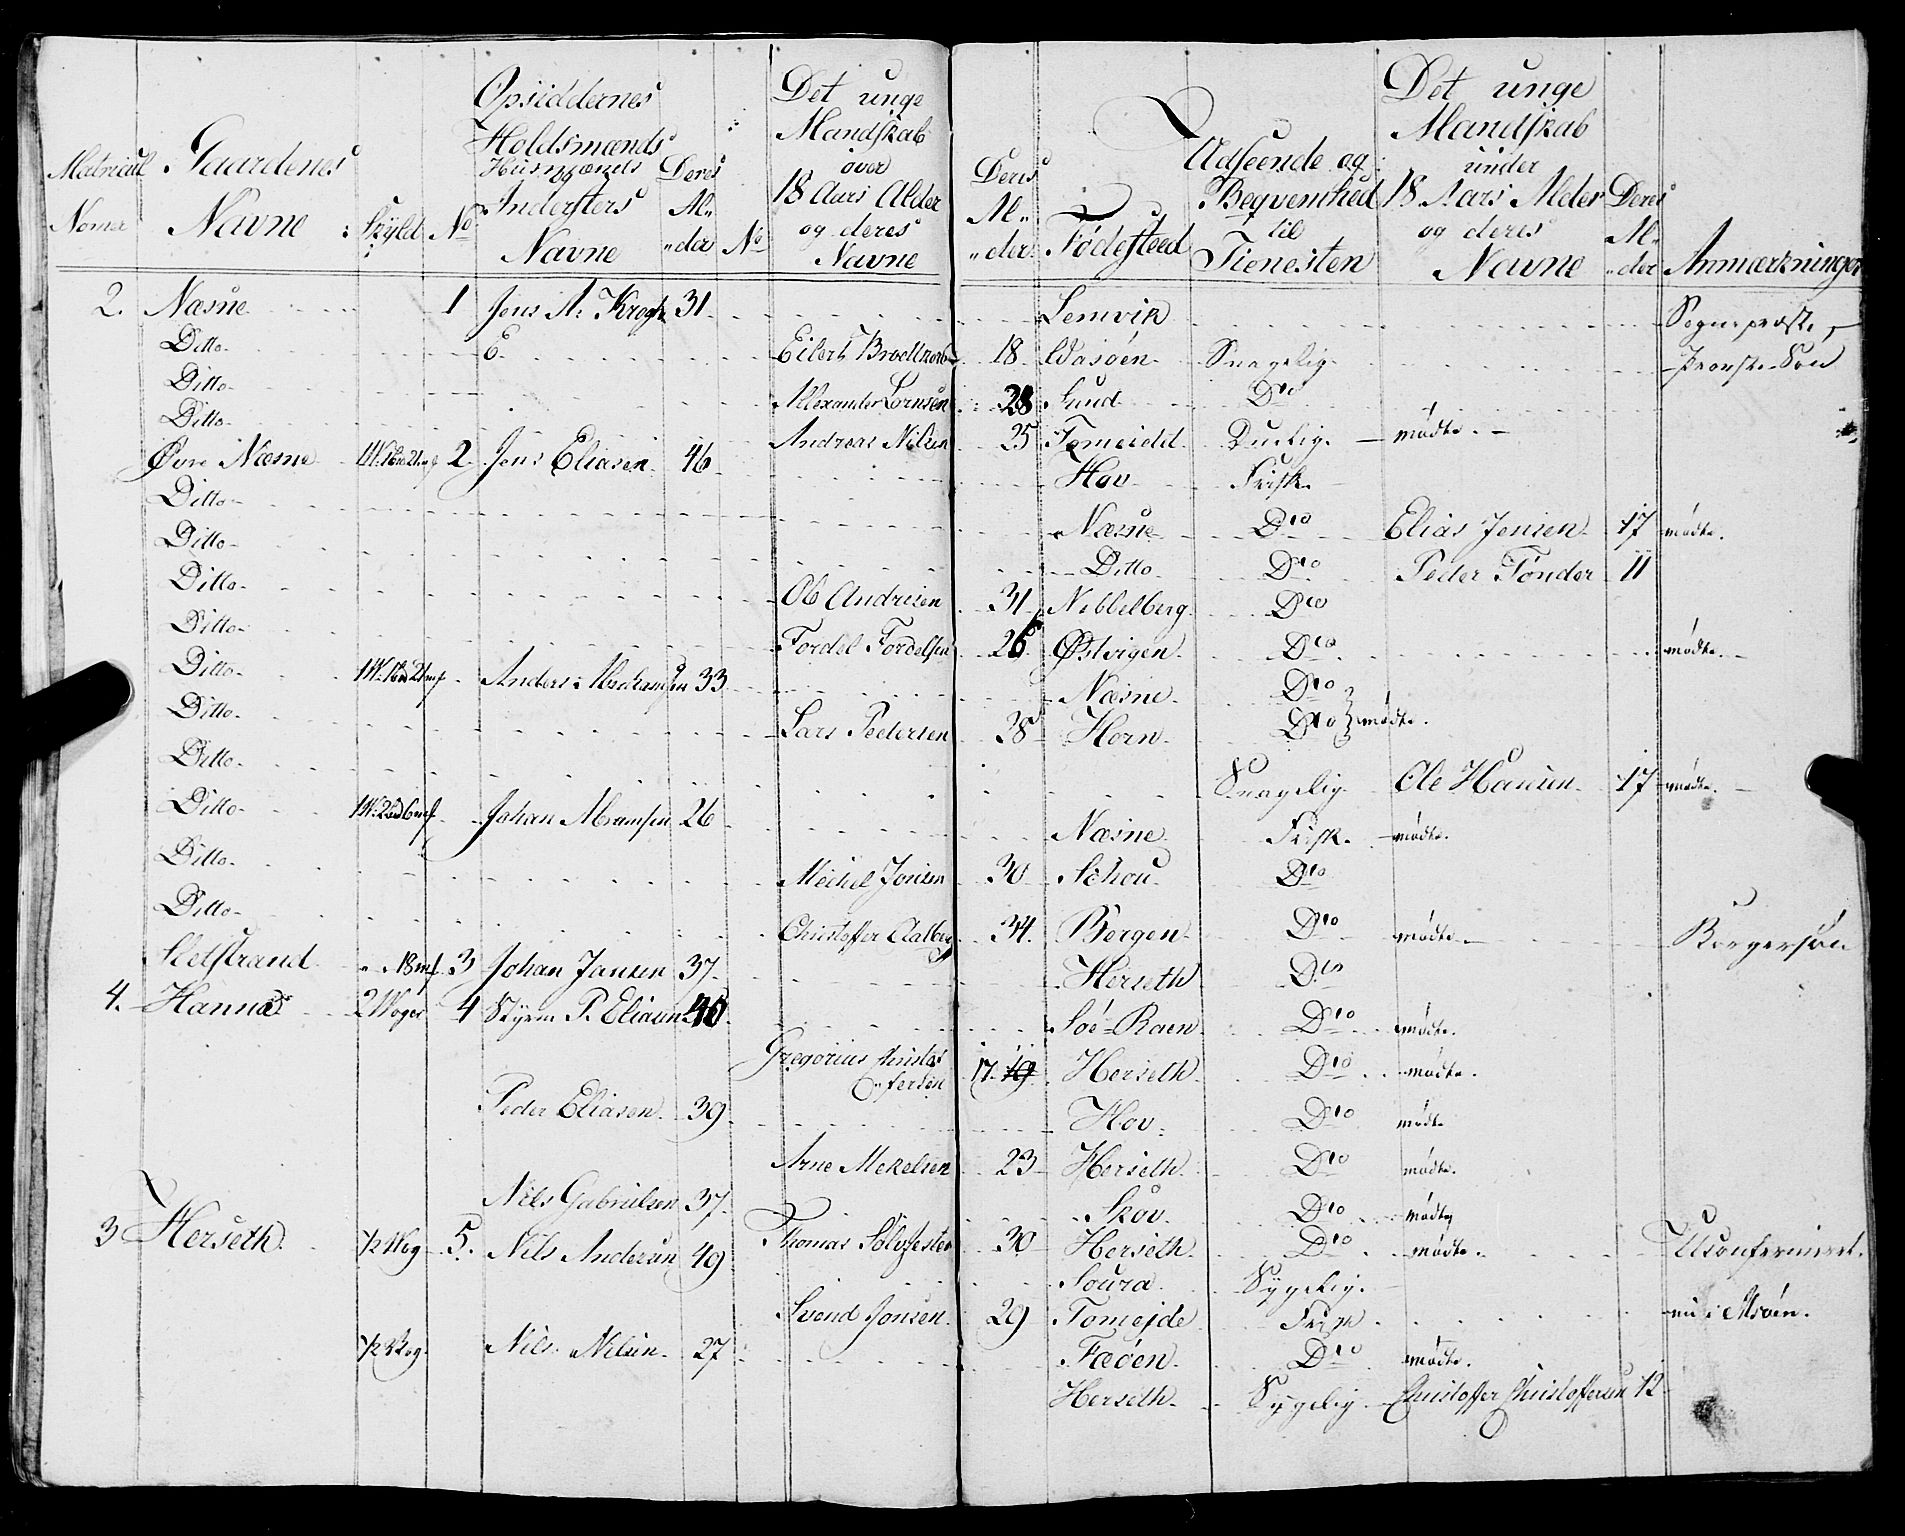 Matricul Nomer | Gaardenes Navne | Skyld | No | Opsiddernes Holdsmænds Husmænds og Indersters Navne | Deres Al„ „der | No | Det unge Mandskab over 18 Aars Alder og deres Navne | Deres Al„ „der | Fødesteed | Udseende og Beqvemhed til Tienesten | Det unge Mandskab under 18 Aars Alder og deres Navne | Deres Al„ „der | Anmærkninger
2. Næsne 1 Jens A: Krogh 31 Lemvik Sognepræst
Ditto E. Eilert Brodtkorb 18 Vasöen Svagelig Provste Søn
Ditto Alexander Lornsen 28 Sund Dto
Ditto Andreas Nilsen 25 Tomeidd Duelig mödte
Øvre Næsne 2. Jens Eliasen 46 Hov Frisk
Ditto Næsne Dto Elias Jensen 17 mødte.
Ditto Ditto Dto Peder Tönder 11
Ditto Ole Andresen 31 Nebbelberg Dto
Ditto Tordel Tordelsen 26 Østvigen Dto mødte.
Ditto Anders Abrahamsen 33 Næsne Dto
Ditto Lars Pedersen 38 Horn Dto mødte.
Ditto Svagelig Ole Hansen 17 mødte.
Ditto Johan Abramsen 26 Næsne Frisk. mødte.
Ditto Meikel Jonsen 30 Schou Dto
Ditto Christoffer Aalberg 34. Bergen Dto mødte Borgersön
Sletstrand 18 mk 3 Johan Jansen 37 Herseth Dto
4. Hannæs 2 Woger 4 Styrm P. Eliasen 40 Söe-Raen Dto mødte.
Gregorius Christof „fersen 17 19 Herseth Dto mødte.
Peder Eliasen 39 Hov Dto mødte
Arne Mekelsen 23 Herseth Dto mødte.
Nils Gabrielsen 37 Skov Dto mødte
3 Herseth 1/2 Wog 5. Nils Andersen 49 Thomas Sölvfester 30 Herseth Dto mødte. Uconfermeret.
Soura Sygelig.
Svend Jonsen 29 Tomejde Frisk
1/2 Wog Nils Nilsen 27 Fæöen Dto mødte.
Herseth Sygelig Christoffer Christoffersen 12